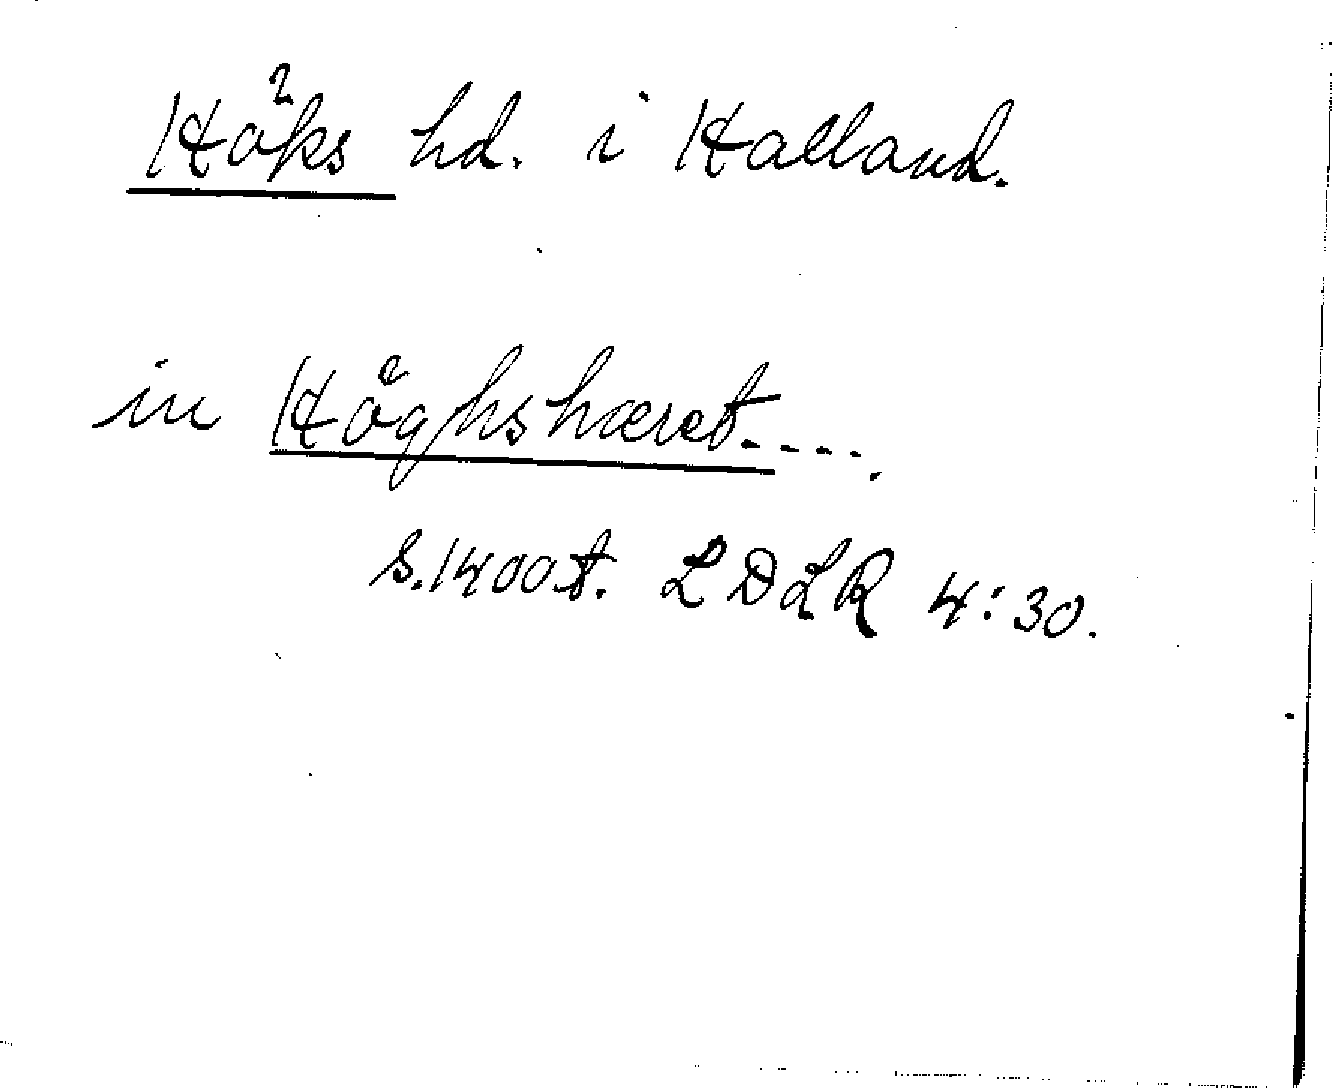 Höks hd. i Halland.
in Hoͤghshæret-----.
s.1400t. LDLR 4:30.